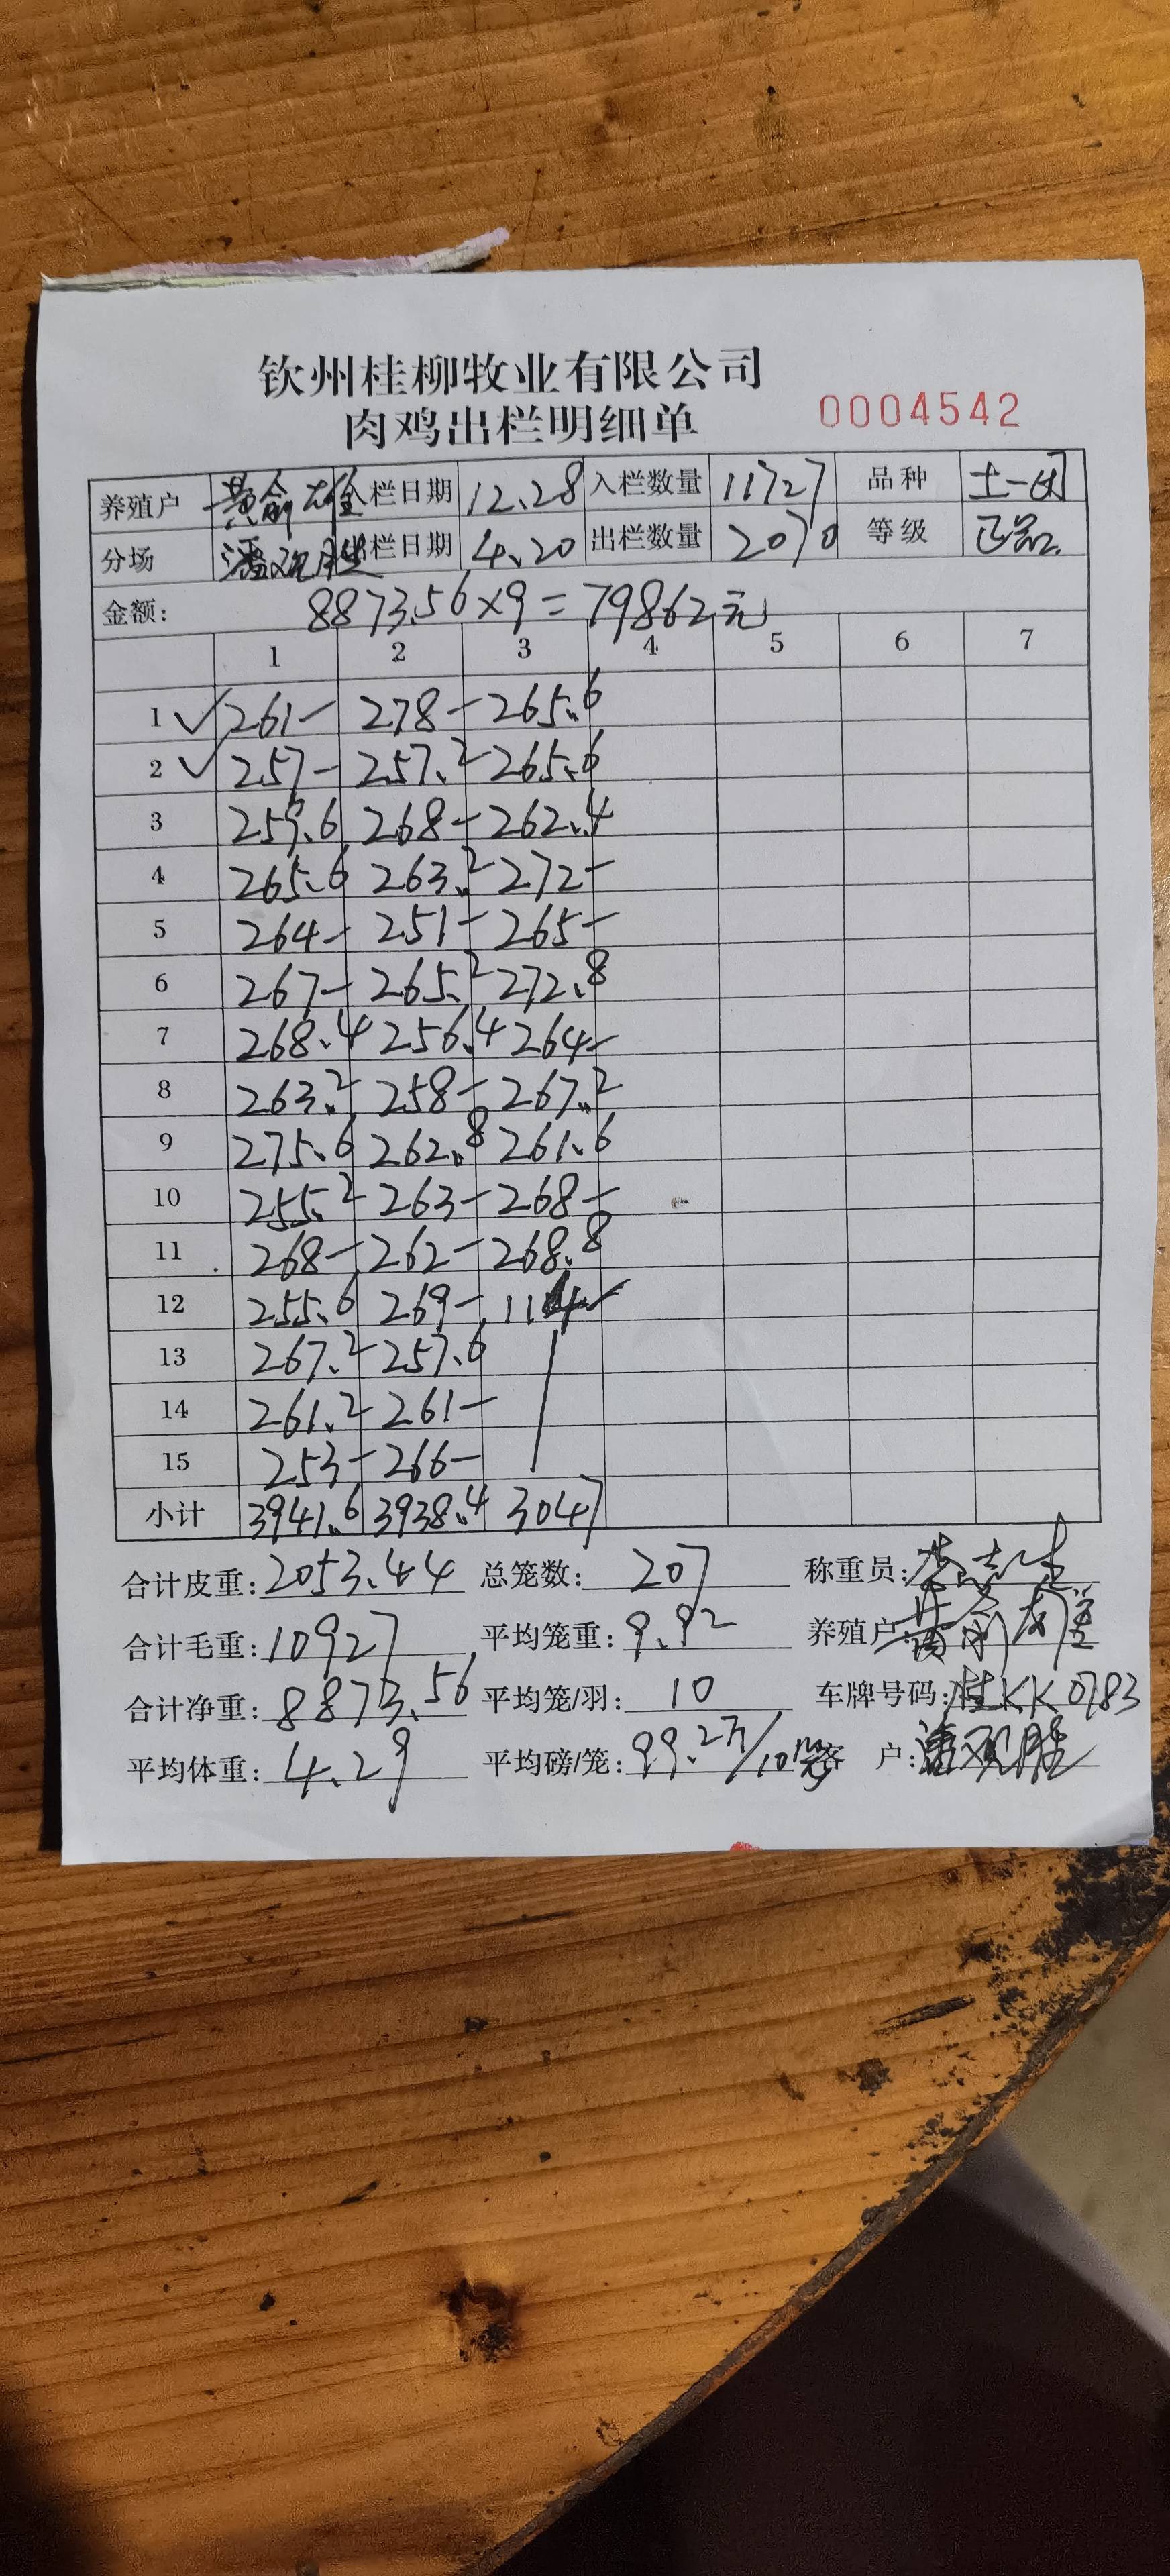 钦州桂柳牧业有限公司
肉鸡出栏明细单 0004542
养殖户 黄俞雄 入栏日期 12.28 入栏数量 11727 品种 土一
分场 潘观胜 出栏日期 4.20 出栏数量 2070 等级 正品
金额: 8873.56×9=79862元
1 2 3 4 5 6 7
1 ✓ 261- 278- 265.6
2 ✓ 257- 257.2 265.6
3 259.6 268- 262.4
4 265.6 263.2 272-
5 264- 251- 265-
6 267- 265.2 272.8
7 268.4 256.4 264-
8 263.2 258- 267.2
9 275.6 262.8 261.6
10 255.2 263- 268-
11 268- 262- 268.8
12 255.6 269- 114-
13 267.2 257.6
14 261.2 261-
15 253- 266-
小计 3941.6 3938.4 3047
合计皮重: 2053.44 总笼数: 207 称重员:
合计毛重: 10927 平均笼重: 9.92 养殖户: 黄俞雄
合计净重: 8873.56 平均笼/羽: 10 车牌号码: 桂KK0783
平均体重: 4.29 平均磅/笼: 99.2斤/10笼 客 户: 潘观胜